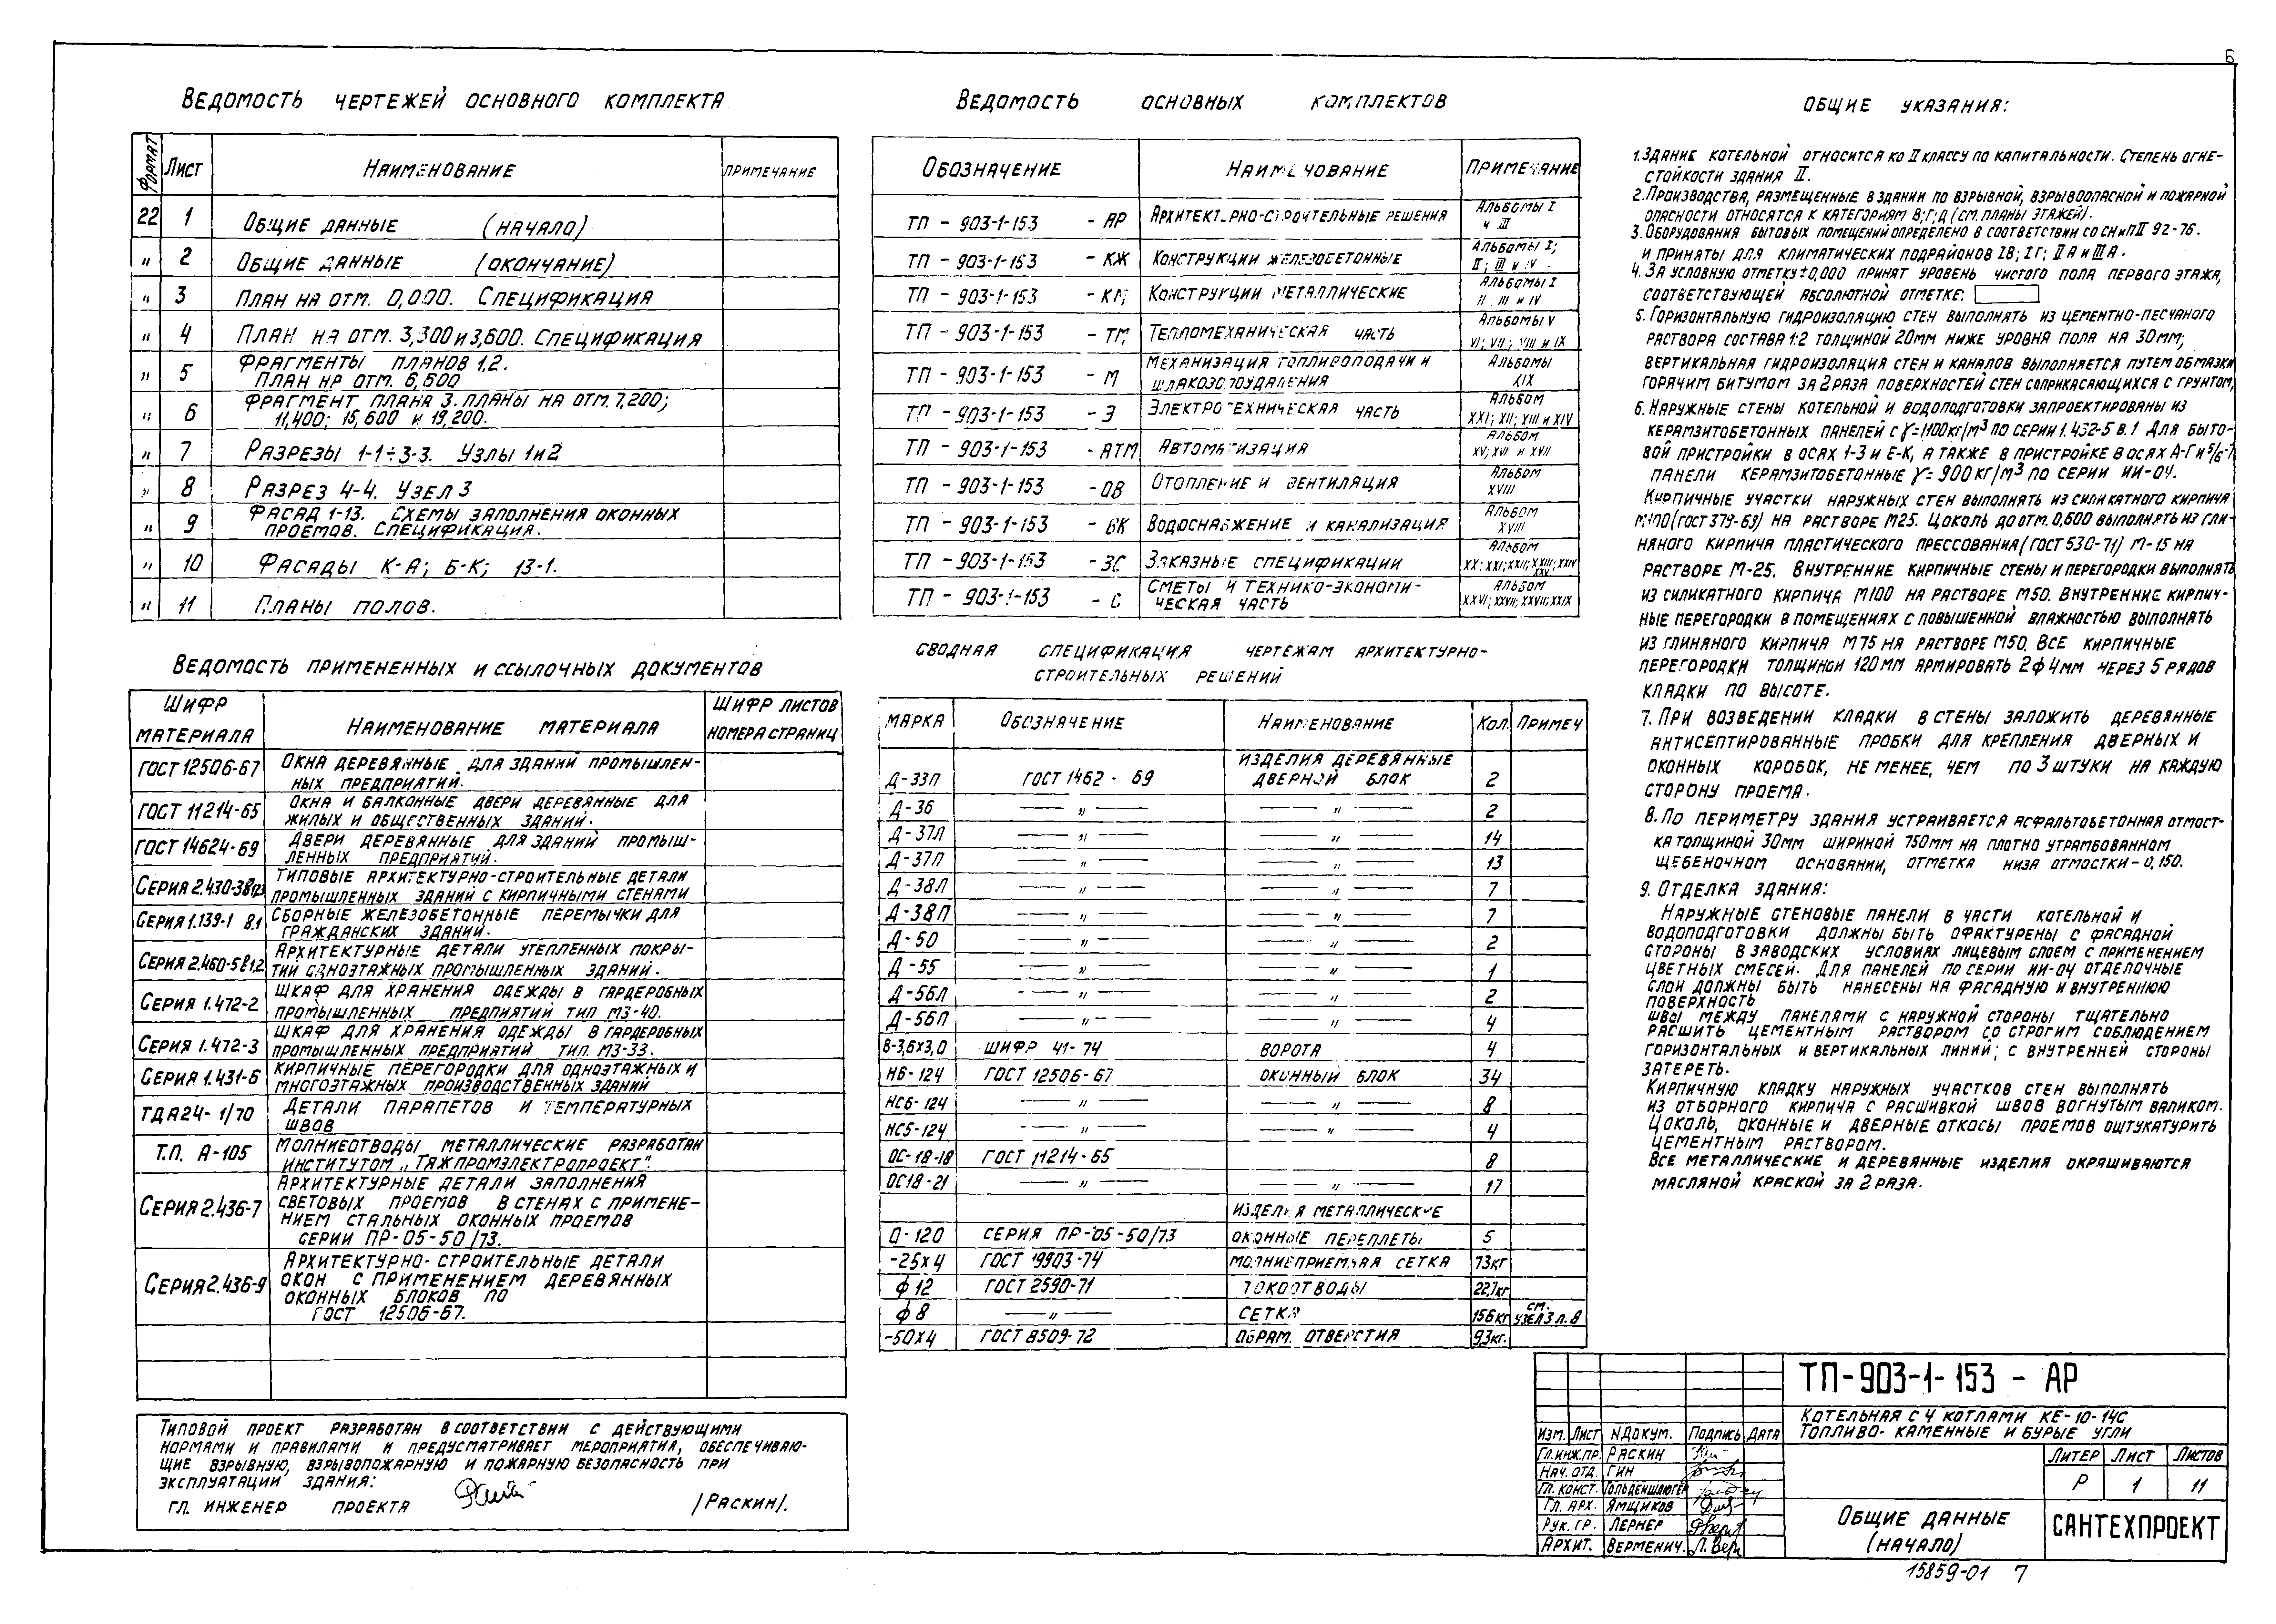 6
ВЕДОМОСТЬ ЧЕРТЕЖЕЙ ОСНОВНОГО КОМПЛЕКТА
ФОРМАТ ЛИСТ НАИМЕНОВАНИЕ ПРИМЕЧАНИЕ
22 1 ОБЩИЕ ДАННЫЕ (НАЧАЛО)
" 2 ОБЩИЕ ДАННЫЕ (ОКОНЧАНИЕ)
" 3 ПЛАН НА ОТМ. 0,000. СПЕЦИФИКАЦИЯ
" 4 ПЛАН НА ОТМ. 3,300 И 3,600. СПЕЦИФИКАЦИЯ
" 5 ФРАГМЕНТЫ ПЛАНОВ 1,2.
ПЛАН НА ОТМ. 6,600
" 6 ФРАГМЕНТ ПЛАНА 3. ПЛАНЫ НА ОТМ. 7,200;
11,400; 15,600 И 19,200.
" 7 РАЗРЕЗЫ 1-1÷3-3. УЗЛЫ 1 И 2
" 8 РАЗРЕЗ 4-4. УЗЕЛ 3
" 9 ФАСАД 1-13. СХЕМЫ ЗАПОЛНЕНИЯ ОКОННЫХ
ПРОЕМОВ. СПЕЦИФИКАЦИЯ.
" 10 ФАСАДЫ К-А; Б-К; 13-1.
" 11 ПЛАНЫ ПОЛОВ.
ВЕДОМОСТЬ ПРИМЕНЕННЫХ И ССЫЛОЧНЫХ ДОКУМЕНТОВ
ШИФР МАТЕРИАЛА НАИМЕНОВАНИЕ МАТЕРИАЛА ШИФР ЛИСТОВ НОМЕРА СТРАНИЦ
ГОСТ 12506-67 ОКНА ДЕРЕВЯННЫЕ ДЛЯ ЗДАНИЙ ПРОМЫШЛЕН-
НЫХ ПРЕДПРИЯТИЙ.
ГОСТ 11214-65 ОКНА И БАЛКОННЫЕ ДВЕРИ ДЕРЕВЯННЫЕ ДЛЯ
ЖИЛЫХ И ОБЩЕСТВЕННЫХ ЗДАНИЙ.
ГОСТ 14624-69 ДВЕРИ ДЕРЕВЯННЫЕ ДЛЯ ЗДАНИЙ ПРОМЫШ-
ЛЕННЫХ ПРЕДПРИЯТИЙ.
СЕРИЯ 2.430-3 ТИПОВЫЕ АРХИТЕКТУРНО-СТРОИТЕЛЬНЫЕ ДЕТАЛИ
ПРОМЫШЛЕННЫХ ЗДАНИЙ С КИРПИЧНЫМИ СТЕНАМИ
СЕРИЯ 1.139-1 В.1 СБОРНЫЕ ЖЕЛЕЗОБЕТОННЫЕ ПЕРЕМЫЧКИ ДЛЯ
ГРАЖДАНСКИХ ЗДАНИЙ.
СЕРИЯ 2.460-5 В1,2 АРХИТЕКТУРНЫЕ ДЕТАЛИ УТЕПЛЕННЫХ ПОКРЫ-
ТИЙ ОДНОЭТАЖНЫХ ПРОМЫШЛЕННЫХ ЗДАНИЙ.
СЕРИЯ 1.472-2 ШКАФ ДЛЯ ХРАНЕНИЯ ОДЕЖДЫ В ГАРДЕРОБНЫХ
ПРОМЫШЛЕННЫХ ПРЕДПРИЯТИЙ ТИП МЗ-40.
СЕРИЯ 1.472-3 ШКАФ ДЛЯ ХРАНЕНИЯ ОДЕЖДЫ В ГАРДЕРОБНЫХ
ПРОМЫШЛЕННЫХ ПРЕДПРИЯТИЙ ТИП. МЗ-33.
СЕРИЯ 1.431-6 КИРПИЧНЫЕ ПЕРЕГОРОДКИ ДЛЯ ОДНОЭТАЖНЫХ И
МНОГОЭТАЖНЫХ ПРОИЗВОДСТВЕННЫХ ЗДАНИЙ
ТДА24-1/70 ДЕТАЛИ ПАРАПЕТОВ И ТЕМПЕРАТУРНЫХ
ШВОВ
Т.П. А-105 МОЛНИЕОТВОДЫ МЕТАЛЛИЧЕСКИЕ РАЗРАБОТАН
ИНСТИТУТОМ „ТЯЖПРОМЭЛЕКТРОПРОЕКТ".
СЕРИЯ 2.436-7 АРХИТЕКТУРНЫЕ ДЕТАЛИ ЗАПОЛНЕНИЯ
СВЕТОВЫХ ПРОЕМОВ В СТЕНАХ С ПРИМЕНЕ-
НИЕМ СТАЛЬНЫХ ОКОННЫХ ПРОЕМОВ
СЕРИИ ПР-05-50/73.
СЕРИЯ 2.436-9 АРХИТЕКТУРНО-СТРОИТЕЛЬНЫЕ ДЕТАЛИ
ОКОН С ПРИМЕНЕНИЕМ ДЕРЕВЯННЫХ
ОКОННЫХ БЛОКОВ ПО
ГОСТ 12506-67.
ТИПОВОЙ ПРОЕКТ РАЗРАБОТАН В СООТВЕТСТВИИ С ДЕЙСТВУЮЩИМИ
НОРМАМИ И ПРАВИЛАМИ И ПРЕДУСМАТРИВАЕТ МЕРОПРИЯТИЯ, ОБЕСПЕЧИВАЮ-
ЩИЕ ВЗРЫВНУЮ, ВЗРЫВОПОЖАРНУЮ И ПОЖАРНУЮ БЕЗОПАСНОСТЬ ПРИ
ЭКСПЛУАТАЦИИ ЗДАНИЯ:
ГЛ. ИНЖЕНЕР ПРОЕКТА /РАСКИН/.
ВЕДОМОСТЬ ОСНОВНЫХ КОМПЛЕКТОВ
ОБОЗНАЧЕНИЕ НАИМЕНОВАНИЕ ПРИМЕЧАНИЕ
ТП-903-1-153 -АР АРХИТЕКТУРНО-СТРОИТЕЛЬНЫЕ РЕШЕНИЯ АЛЬБОМЫ I
И III
ТП-903-1-153 -КЖ КОНСТРУКЦИИ ЖЕЛЕЗОБЕТОННЫЕ АЛЬБОМЫ I;
II; III И IV.
ТП-903-1-153 -КМ КОНСТРУКЦИИ МЕТАЛЛИЧЕСКИЕ АЛЬБОМЫ I
II; III И IV
ТП-903-1-153 -ТМ ТЕПЛОМЕХАНИЧЕСКАЯ ЧАСТЬ АЛЬБОМЫ V
VI; VII; VIII И IX
ТП-903-1-153 -М МЕХАНИЗАЦИЯ ТОПЛИВОПОДАЧИ И
ШЛАКОЗОЛОУДАЛЕНИЯ АЛЬБОМЫ
XIX
ТП-903-1-153 -Э ЭЛЕКТРОТЕХНИЧЕСКАЯ ЧАСТЬ АЛЬБОМ
XXI; XII; XIII И XIV
ТП-903-1-153 -АТМ АВТОМАТИЗАЦИЯ АЛЬБОМ
XV; XVI И XVII
ТП-903-1-153 -ОВ ОТОПЛЕНИЕ И ВЕНТИЛЯЦИЯ АЛЬБОМ
XVIII
ТП-903-1-153 -ВК ВОДОСНАБЖЕНИЕ И КАНАЛИЗАЦИЯ АЛЬБОМ
XVIII
ТП-903-1-153 -ЗС ЗАКАЗНЫЕ СПЕЦИФИКАЦИИ АЛЬБОМ
XX; XXI; XXII; XXIII; XXIV
XXV
ТП-903-1-153 -С СМЕТЫ И ТЕХНИКО-ЭКОНОМИ-
ЧЕСКАЯ ЧАСТЬ АЛЬБОМ
XXVI; XXVII; XXVII; XXIX
СВОДНАЯ СПЕЦИФИКАЦИЯ ЧЕРТЕЖАМ АРХИТЕКТУРНО-
СТРОИТЕЛЬНЫХ РЕШЕНИЙ
МАРКА ОБОЗНАЧЕНИЕ НАИМЕНОВАНИЕ КОЛ. ПРИМЕЧ
ИЗДЕЛИЯ ДЕРЕВЯННЫЕ
Д-33П ГОСТ 1462-69 ДВЕРНОЙ БЛОК 2
Д-36 —"— —"— 2
Д-37Л —"— —"— 14
Д-37П —"— —"— 13
Д-38Л —"— —"— 7
Д-38П —"— —"— 7
Д-50 —"— —"— 2
Д-55 —"— —"— 1
Д-56Л —"— —"— 2
Д-56П —"— —"— 4
В-3,6×3,0 ШИФР 41-74 ВОРОТА 4
НБ-124 ГОСТ 12506-67 ОКОННЫЙ БЛОК 34
НСБ-124 —"— —"— 8
НС5-124 —"— —"— 4
ОС-18-18 ГОСТ 11214-65 8
ОС18-21 —"— —"— 17
ИЗДЕЛИЯ МЕТАЛЛИЧЕСКИЕ
О-120 СЕРИЯ ПР-05-50/73 ОКОННЫЕ ПЕРЕПЛЕТЫ 5
-25×4 ГОСТ 19903-74 МОЛНИЕПРИЕМНАЯ СЕТКА 73КГ
ф12 ГОСТ 2590-71 ТОКООТВОДЫ 22,7КГ
ф8 —"— СЕТКА 156КГ СМ. УЗЕЛ 3 Л. 8
-50×4 ГОСТ 8509-72 ОБРАМ. ОТВЕРСТИЯ 9,3КГ.
ОБЩИЕ УКАЗАНИЯ:
1. ЗДАНИЕ КОТЕЛЬНОЙ ОТНОСИТСЯ КО II КЛАССУ ПО КАПИТАЛЬНОСТИ. СТЕПЕНЬ ОГНЕ-
СТОЙКОСТИ ЗДАНИЯ II.
2. ПРОИЗВОДСТВА, РАЗМЕЩЕННЫЕ В ЗДАНИИ ПО ВЗРЫВНОЙ, ВЗРЫВООПАСНОЙ И ПОЖАРНОЙ
ОПАСНОСТИ ОТНОСЯТСЯ К КАТЕГОРИЯМ В; Г; Д (СМ. ПЛАНЫ ЭТАЖЕЙ).
3. ОБОРУДОВАНИЯ БЫТОВЫХ ПОМЕЩЕНИЙ ОПРЕДЕЛЕНО В СООТВЕТСТВИИ СО СНиП II 92-76.
И ПРИНЯТЫ ДЛЯ КЛИМАТИЧЕСКИХ ПОДРАЙОНОВ IВ; IГ; IIА И IIIА.
4. ЗА УСЛОВНУЮ ОТМЕТКУ ±0,000 ПРИНЯТ УРОВЕНЬ ЧИСТОГО ПОЛА ПЕРВОГО ЭТАЖА,
СООТВЕТСТВУЮЩЕЙ АБСОЛЮТНОЙ ОТМЕТКЕ:
5. ГОРИЗОНТАЛЬНУЮ ГИДРОИЗОЛЯЦИЮ СТЕН ВЫПОЛНЯТЬ ИЗ ЦЕМЕНТНО-ПЕСЧАНОГО
РАСТВОРА СОСТАВА 1:2 ТОЛЩИНОЙ 20ММ НИЖЕ УРОВНЯ ПОЛА НА 30ММ;
ВЕРТИКАЛЬНАЯ ГИДРОИЗОЛЯЦИЯ СТЕН И КАНАЛОВ ВЫПОЛНЯЕТСЯ ПУТЕМ ОБМАЗКИ
ГОРЯЧИМ БИТУМОМ ЗА 2 РАЗА ПОВЕРХНОСТЕЙ СТЕН СОПРИКАСАЮЩИХСЯ С ГРУНТОМ;
6. НАРУЖНЫЕ СТЕНЫ КОТЕЛЬНОЙ И ВОДОПОДГОТОВКИ ЗАПРОЕКТИРОВАНЫ ИЗ
КЕРАМЗИТОБЕТОННЫХ ПАНЕЛЕЙ С γ=1100КГ/М³ ПО СЕРИИ 1.432-5 В.1 ДЛЯ БЫТО-
ВОЙ ПРИСТРОЙКИ В ОСЯХ 1-3 И Е-К, А ТАКЖЕ В ПРИСТРОЙКЕ В ОСЯХ А-Г И 5/6-7
ПАНЕЛИ КЕРАМЗИТОБЕТОННЫЕ γ=900КГ/М³ ПО СЕРИИ ИИ-04.
КИРПИЧНЫЕ УЧАСТКИ НАРУЖНЫХ СТЕН ВЫПОЛНЯТЬ ИЗ СИЛИКАТНОГО КИРПИЧА
М100 (ГОСТ 379-69) НА РАСТВОРЕ М25. ЦОКОЛЬ ДО ОТМ. 0,600 ВЫПОЛНЯТЬ ИЗ ГЛИ-
НЯНОГО КИРПИЧА ПЛАСТИЧЕСКОГО ПРЕССОВАНИЯ (ГОСТ 530-71) М-15 НА
РАСТВОРЕ М-25. ВНУТРЕННИЕ КИРПИЧНЫЕ СТЕНЫ И ПЕРЕГОРОДКИ ВЫПОЛНЯТЬ
ИЗ СИЛИКАТНОГО КИРПИЧА М100 НА РАСТВОРЕ М50. ВНУТРЕННИЕ КИРПИЧ-
НЫЕ ПЕРЕГОРОДКИ В ПОМЕЩЕНИЯХ С ПОВЫШЕННОЙ ВЛАЖНОСТЬЮ ВЫПОЛНЯТЬ
ИЗ ГЛИНЯНОГО КИРПИЧА М75 НА РАСТВОРЕ М50. ВСЕ КИРПИЧНЫЕ
ПЕРЕГОРОДКИ ТОЛЩИНОЙ 120ММ АРМИРОВАТЬ 2ф4ММ ЧЕРЕЗ 5 РЯДОВ
КЛАДКИ ПО ВЫСОТЕ.
7. ПРИ ВОЗВЕДЕНИИ КЛАДКИ В СТЕНЫ ЗАЛОЖИТЬ ДЕРЕВЯННЫЕ
АНТИСЕПТИРОВАННЫЕ ПРОБКИ ДЛЯ КРЕПЛЕНИЯ ДВЕРНЫХ И
ОКОННЫХ КОРОБОК, НЕ МЕНЕЕ, ЧЕМ ПО 3 ШТУКИ НА КАЖДУЮ
СТОРОНУ ПРОЕМА.
8. ПО ПЕРИМЕТРУ ЗДАНИЯ УСТРАИВАЕТСЯ АСФАЛЬТОБЕТОННАЯ ОТМОСТ-
КА ТОЛЩИНОЙ 30ММ ШИРИНОЙ 750ММ НА ПЛОТНО УТРАМБОВАННОМ
ЩЕБЕНОЧНОМ ОСНОВАНИИ, ОТМЕТКА НИЗА ОТМОСТКИ-0,150.
9. ОТДЕЛКА ЗДАНИЯ:
НАРУЖНЫЕ СТЕНОВЫЕ ПАНЕЛИ В ЧАСТИ КОТЕЛЬНОЙ И
ВОДОПОДГОТОВКИ ДОЛЖНЫ БЫТЬ ОФАКТУРЕНЫ С ФАСАДНОЙ
СТОРОНЫ В ЗАВОДСКИХ УСЛОВИЯХ ЛИЦЕВЫМ СЛОЕМ С ПРИМЕНЕНИЕМ
ЦВЕТНЫХ СМЕСЕЙ. ДЛЯ ПАНЕЛЕЙ ПО СЕРИИ ИИ-04 ОТДЕЛОЧНЫЕ
СЛОИ ДОЛЖНЫ БЫТЬ НАНЕСЕНЫ НА ФАСАДНУЮ И ВНУТРЕННЮЮ
ПОВЕРХНОСТЬ
ШВЫ МЕЖДУ ПАНЕЛЯМИ С НАРУЖНОЙ СТОРОНЫ ТЩАТЕЛЬНО
РАСШИТЬ ЦЕМЕНТНЫМ РАСТВОРОМ СО СТРОГИМ СОБЛЮДЕНИЕМ
ГОРИЗОНТАЛЬНЫХ И ВЕРТИКАЛЬНЫХ ЛИНИЙ; С ВНУТРЕННЕЙ СТОРОНЫ
ЗАТЕРЕТЬ.
КИРПИЧНУЮ КЛАДКУ НАРУЖНЫХ УЧАСТКОВ СТЕН ВЫПОЛНЯТЬ
ИЗ ОТБОРНОГО КИРПИЧА С РАСШИВКОЙ ШВОВ ВОГНУТЫМ ВАЛИКОМ.
ЦОКОЛЬ, ОКОННЫЕ И ДВЕРНЫЕ ОТКОСЫ ПРОЕМОВ ОШТУКАТУРИТЬ
ЦЕМЕНТНЫМ РАСТВОРОМ.
ВСЕ МЕТАЛЛИЧЕСКИЕ И ДЕРЕВЯННЫЕ ИЗДЕЛИЯ ОКРАШИВАЮТСЯ
МАСЛЯНОЙ КРАСКОЙ ЗА 2 РАЗА.
ТП-903-1-153 - АР
КОТЕЛЬНАЯ С 4 КОТЛАМИ КЕ-10-14С
ТОПЛИВО- КАМЕННЫЕ И БУРЫЕ УГЛИ
ИЗМ. ЛИСТ NДОКУМ. ПОДПИСЬ ДАТА
ГЛ.ИНЖ.ПР. РАСКИН
НАЧ. ОТД. ГИН
ГЛ. КОНСТ. ГОЛЬДЕНШЛЮГЕР
ГЛ. АРХ. ЯМЩИКОВ
РУК. ГР. ЛЕРНЕР
АРХИТ. ВЕРМЕНИЧ.
ЛИТЕР ЛИСТ ЛИСТОВ
Р 1 11
ОБЩИЕ ДАННЫЕ
(НАЧАЛО)
САНТЕХПРОЕКТ
15859-01 7